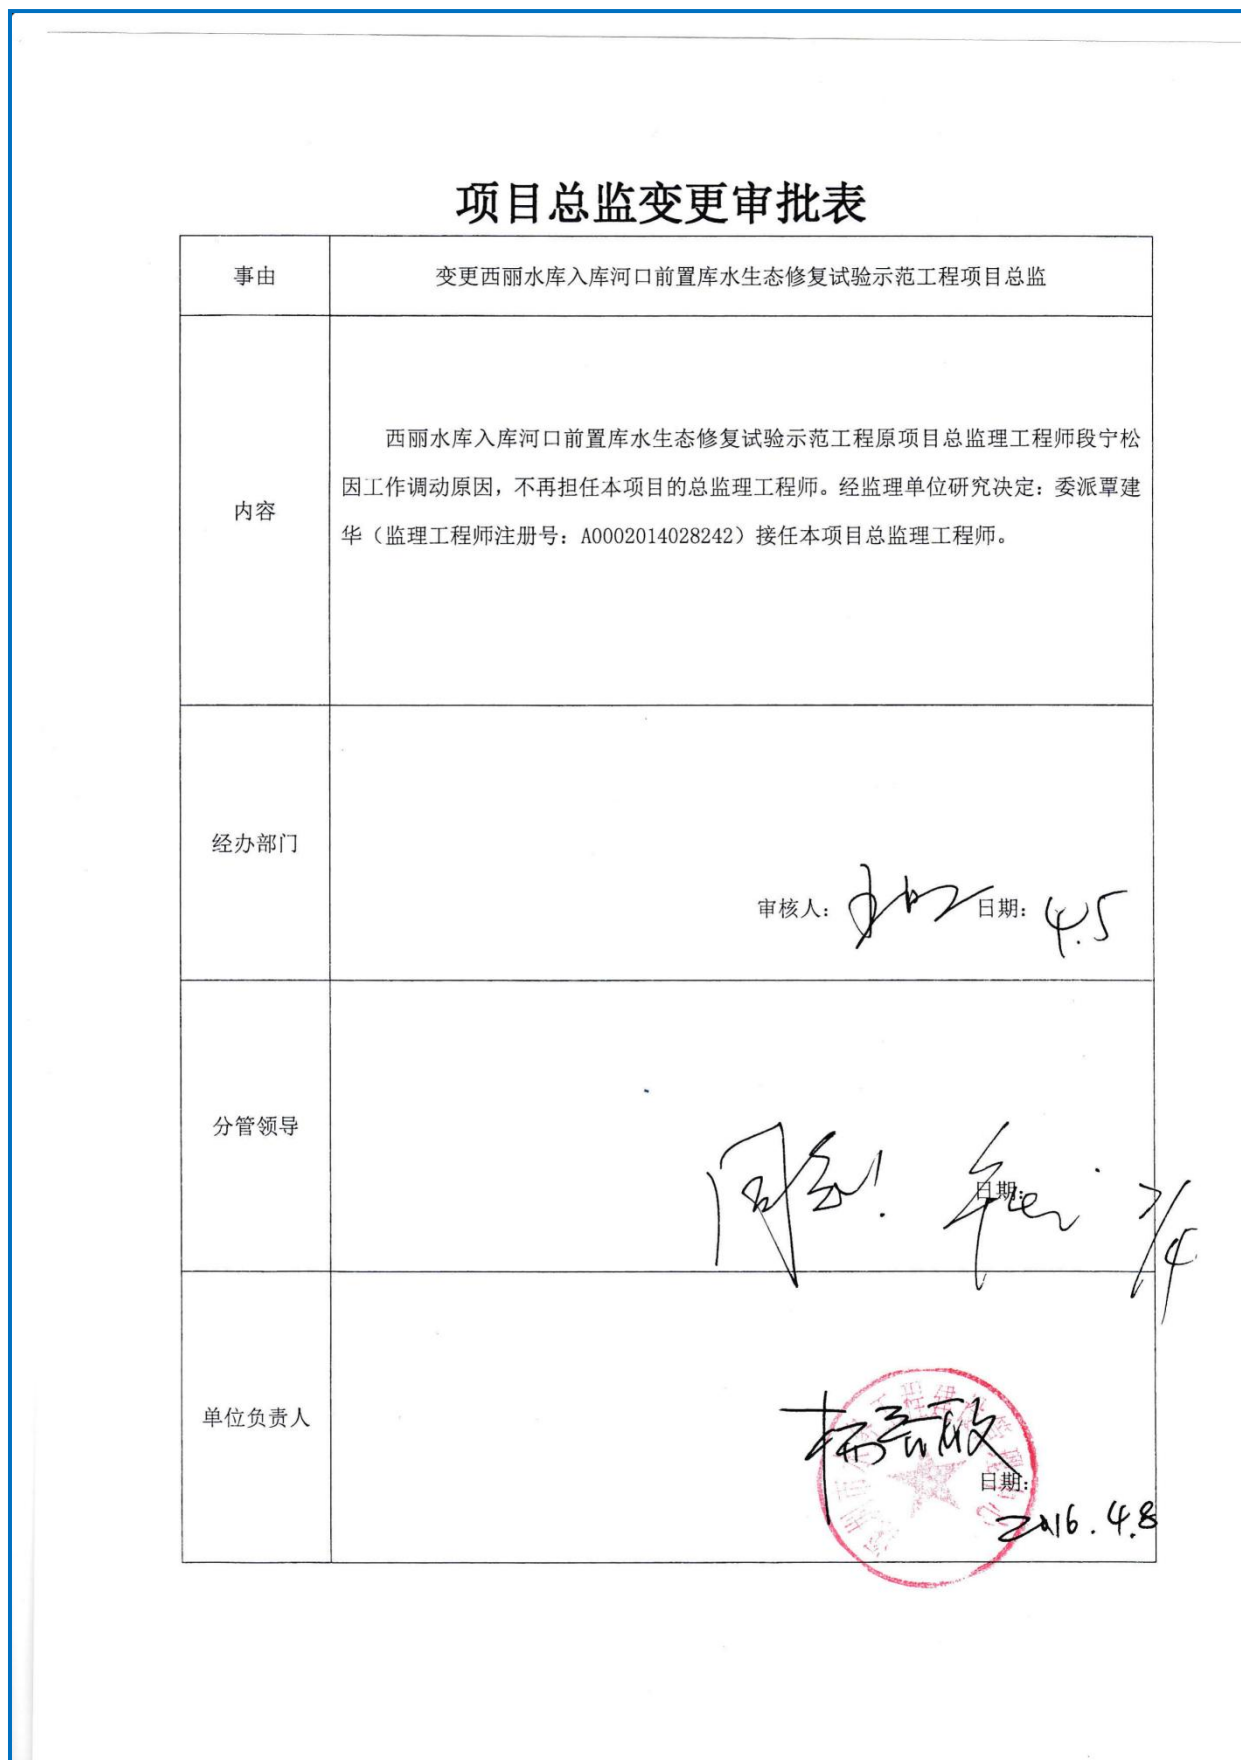 项目总监变更审批表
事由
变更西丽水库入库河口前置库水生态修复试验示范工程项目总监
内容
西丽水库入库河口前置库水生态修复试验示范工程原项目总监理工程师段宁松
因工作调动原因，不再担任本项目的总监理工程师。经监理单位研究决定：委派覃建
华（监理工程师注册号：A0002014028242）接任本项目总监理工程师。
经办部门
审核人： 日期：4.5
分管领导
同意！ 日期： 7/4
单位负责人
日期：
2016.4.8